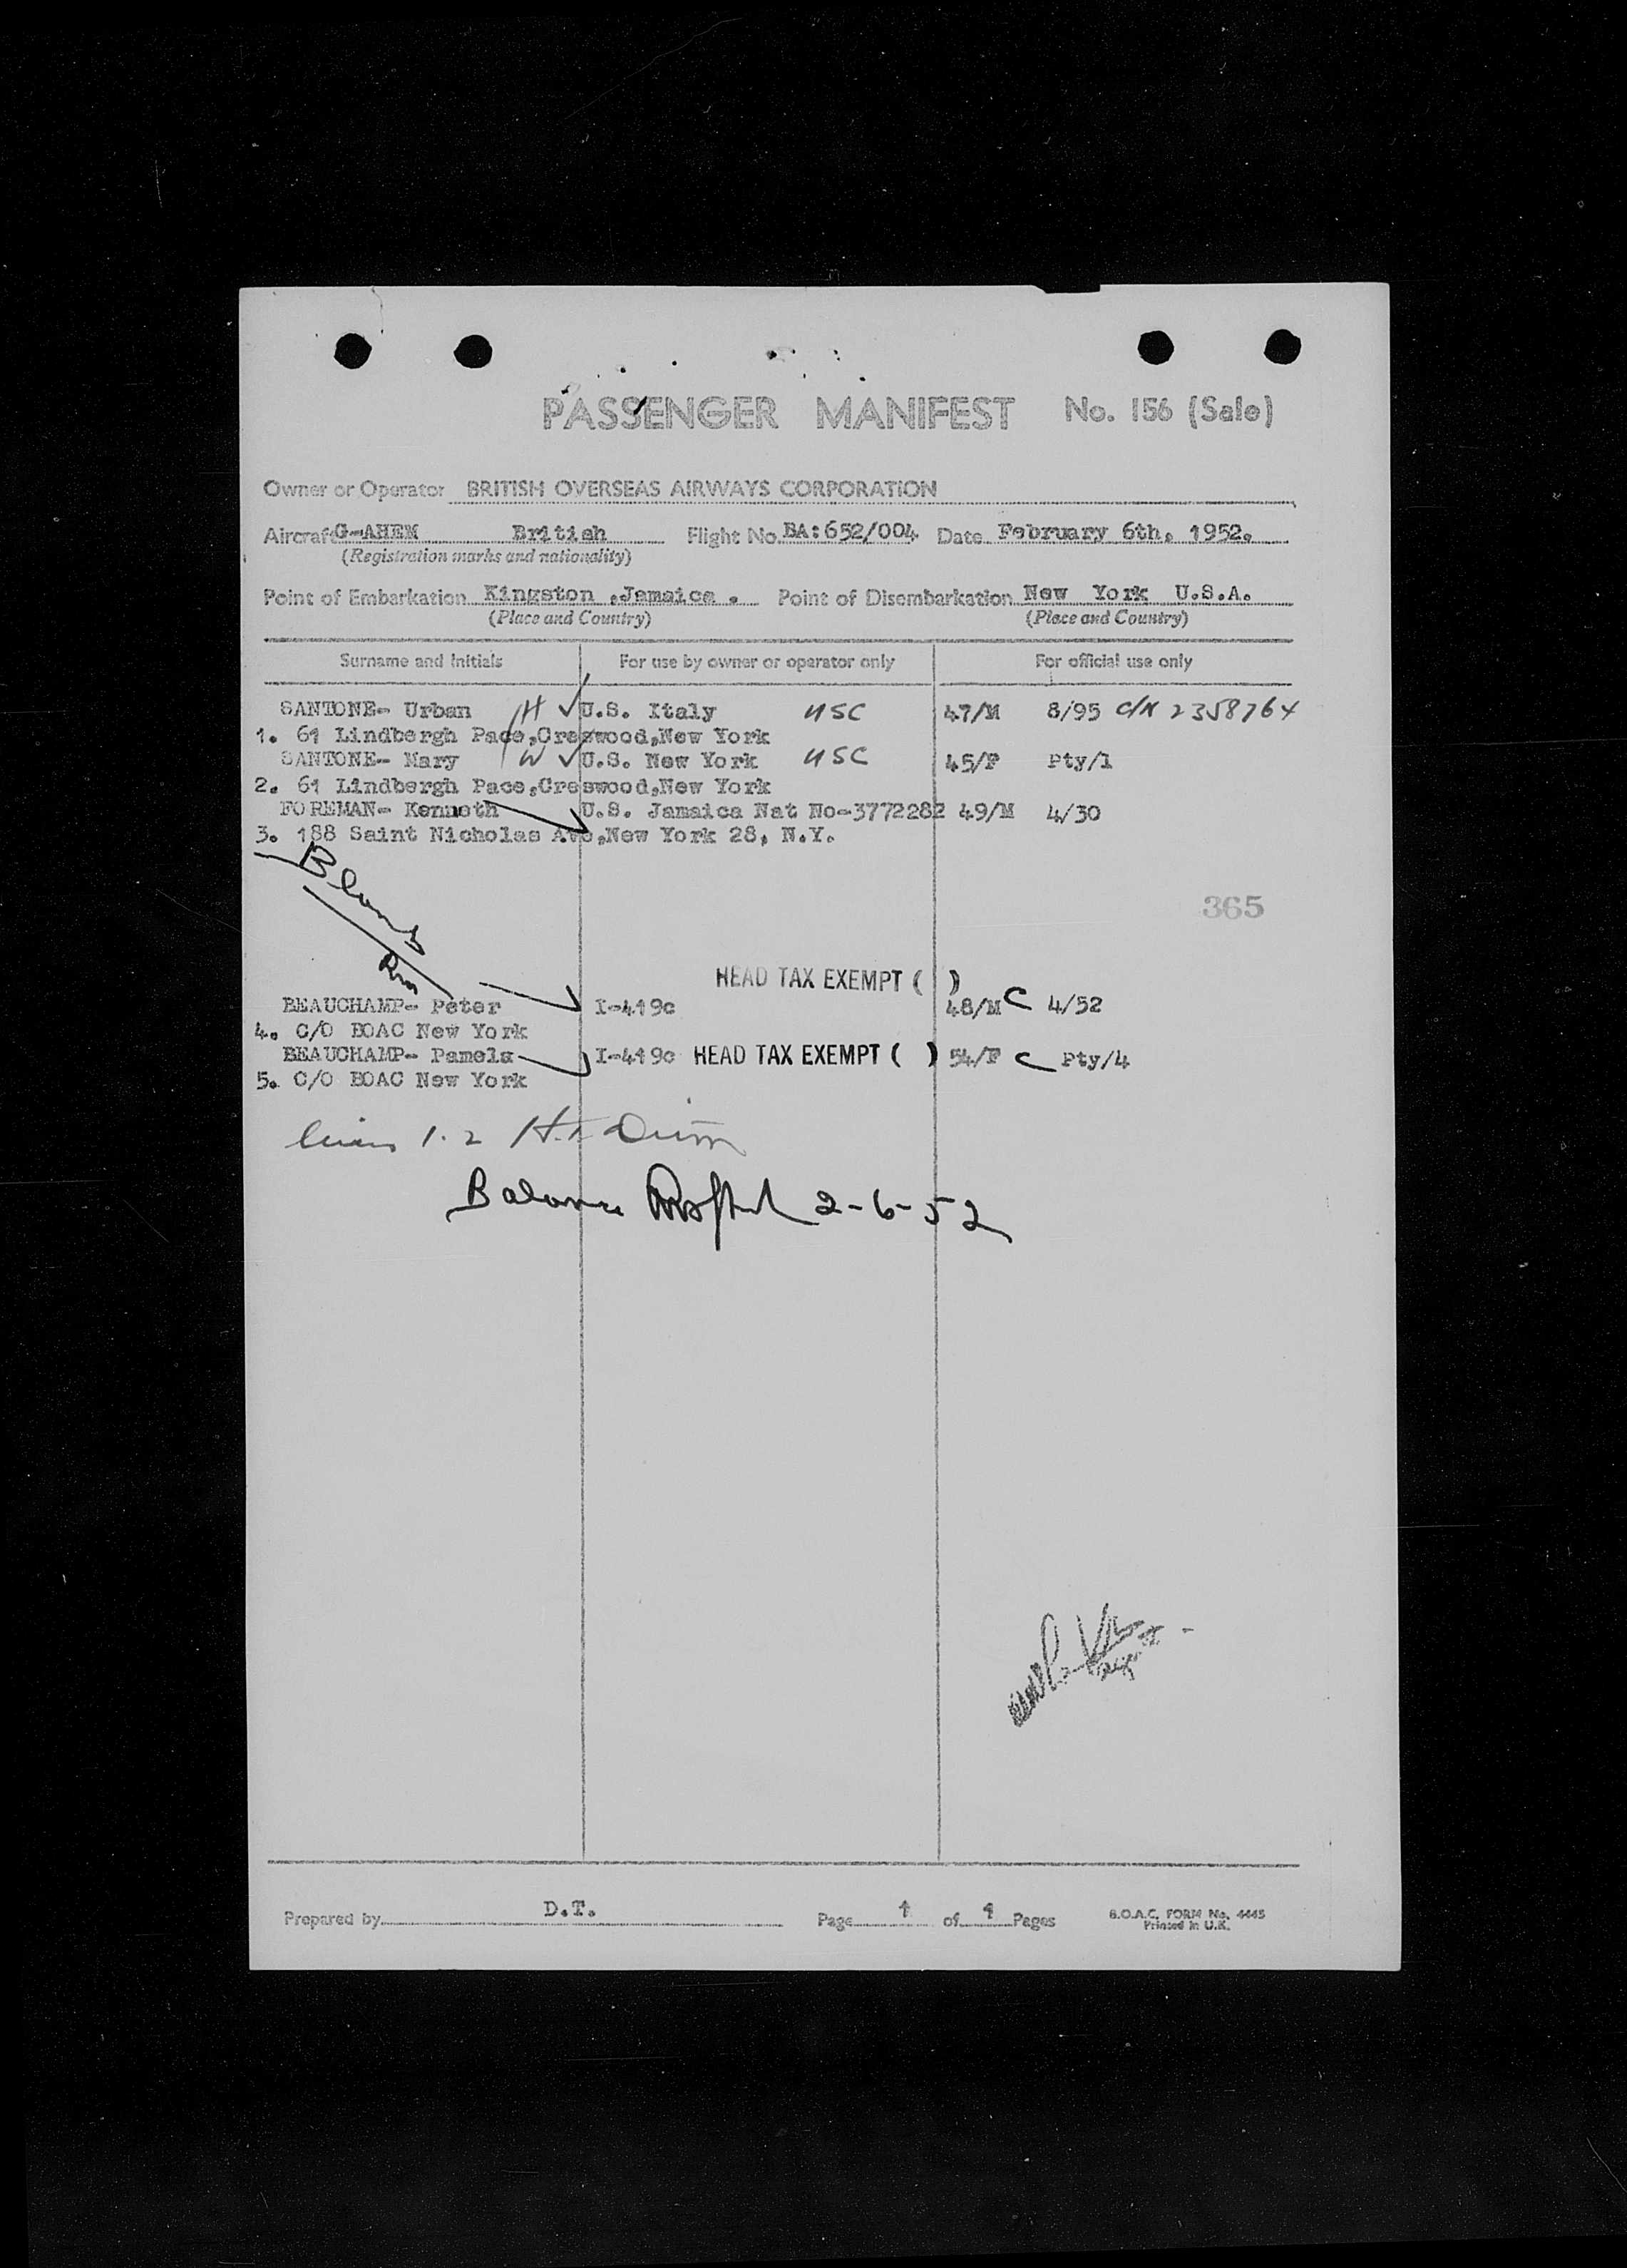 PASSENGER MANIFEST No. 156 (Sale)
Owner or Operator BRITISH OVERSEAS AIRWAYS CORPORATION
Aircraft G-AHEM British Flight No. BA:652/004 Date February 6th, 1952.
(Registration marks and nationality)
Point of Embarkation Kingston ,Jamaica . Point of Disembarkation New York U.S.A.
(Place and Country) (Place and Country)
Surname and Initials For use by owner or operator only For official use only
SANTONE- Urban H U.S. Italy USC 47/M 8/95 C/N 2358764
1. 61 Lindbergh Pace,Creswood,New York
SANTONE- Mary W U.S. New York USC 45/F Pty/1
2. 61 Lindbergh Pace,Creswood,New York
FOREMAN- Kenneth U.S. Jamaica Nat No-3772282 49/M 4/30
3. 188 Saint Nicholas Ave,New York 28, N.Y.
Blank
365
HEAD TAX EXEMPT ( )
BEAUCHAMP- Peter I-419c 48/M C 4/52
4. C/O BOAC New York
BEAUCHAMP- Pamela I-419c HEAD TAX EXEMPT ( ) 54/F C Pty/4
5. C/O BOAC New York
1.2
Balance 2-6-52
Prepared by D.T. Page 1 of 1 Pages B.O.A.C. FORM No. 4445
Printed in U.K.